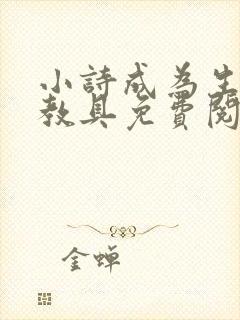 小詩成為生
教具免費閱
金蝉